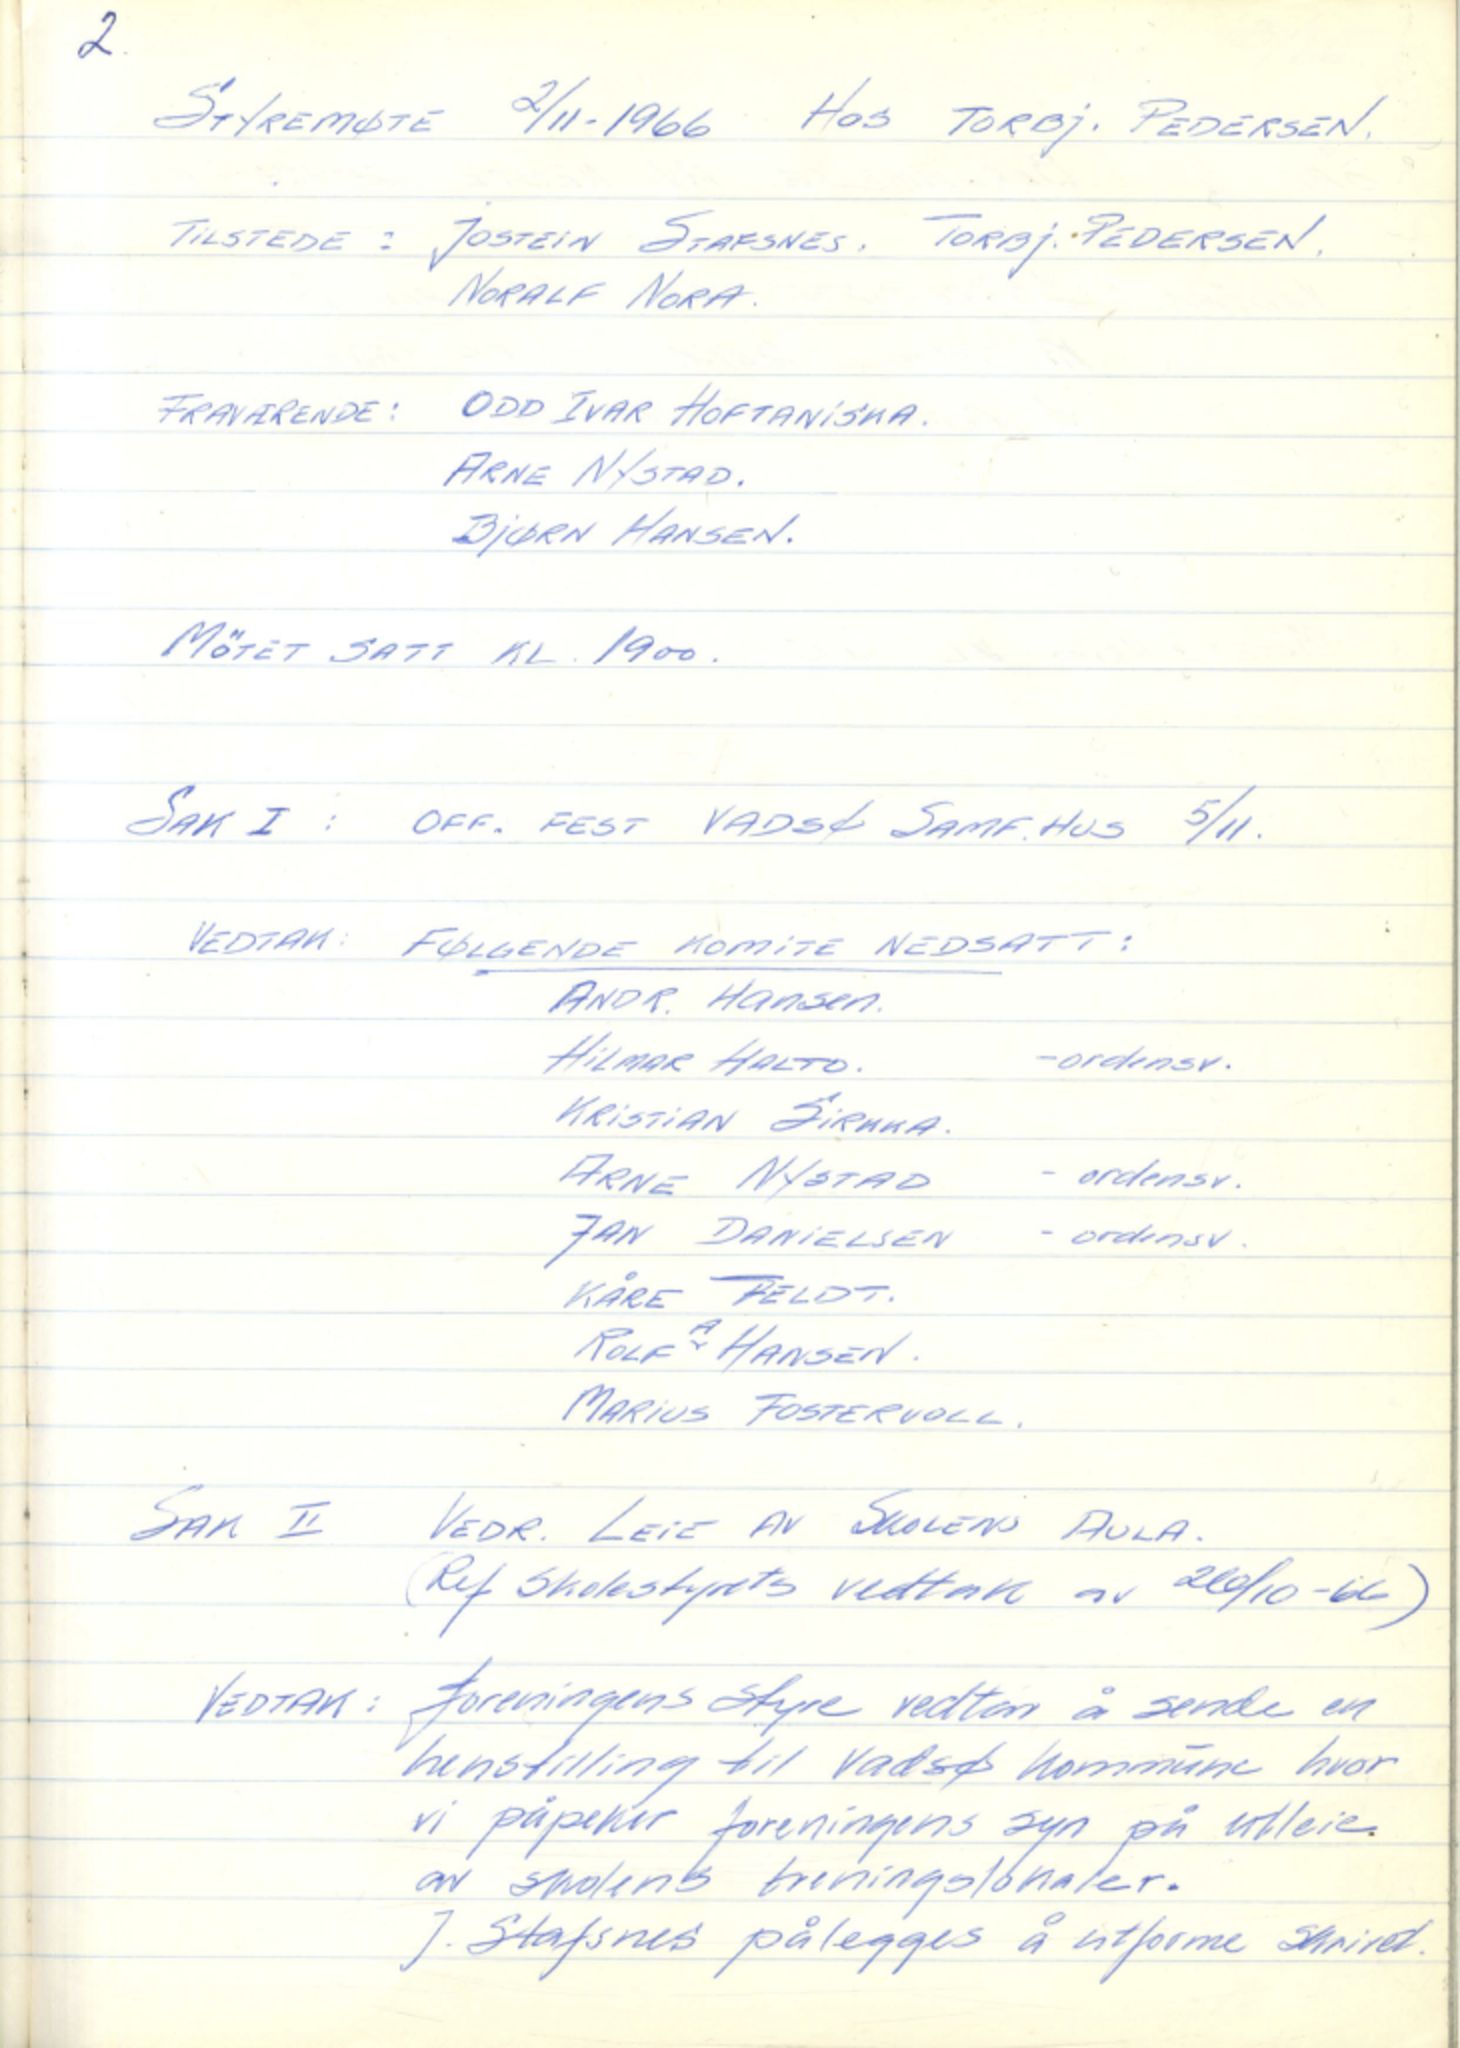 2.
STYREMØTE 2/11-1966 HOS TORBJ. PEDERSEN.
TILSTEDE: JOSTEIN STAFSNES. TORBJ. PEDERSEN.
NORALF NORA.
FRAVÆRENDE: ODD IVAR HOFTANISKA.
ARNE NYSTAD.
BJØRN HANSEN.
MÖTET SATT KL. 1900.
SAK I: OFF. FEST VADSØ SAMF.HUS 5/11.
VEDTAK: FØLGENDE KOMITE NEDSATT:
ANDR. Hansen.
HILMAR HALTO. -ordensv.
KRISTIAN SIRKKA.
ARNE NYSTAD - ordensv.
JAN DANIELSEN - ordensv.
KÅRE FELDT.
ROLF A HANSEN.
MARIUS FOSTERVOLL.
SAK II VEDR. LEIE AV SKOLENS AULA.
(Ref skolestyrets vedtak av /10-66)
VEDTAK: foreningens styre vedtar å sende en
henstilling til Vadsø kommune hvor
vi påpeker foreningens syn på utleie
av skolens treningslokaler.
J. Stafsnes pålegges å utforme skrivet.